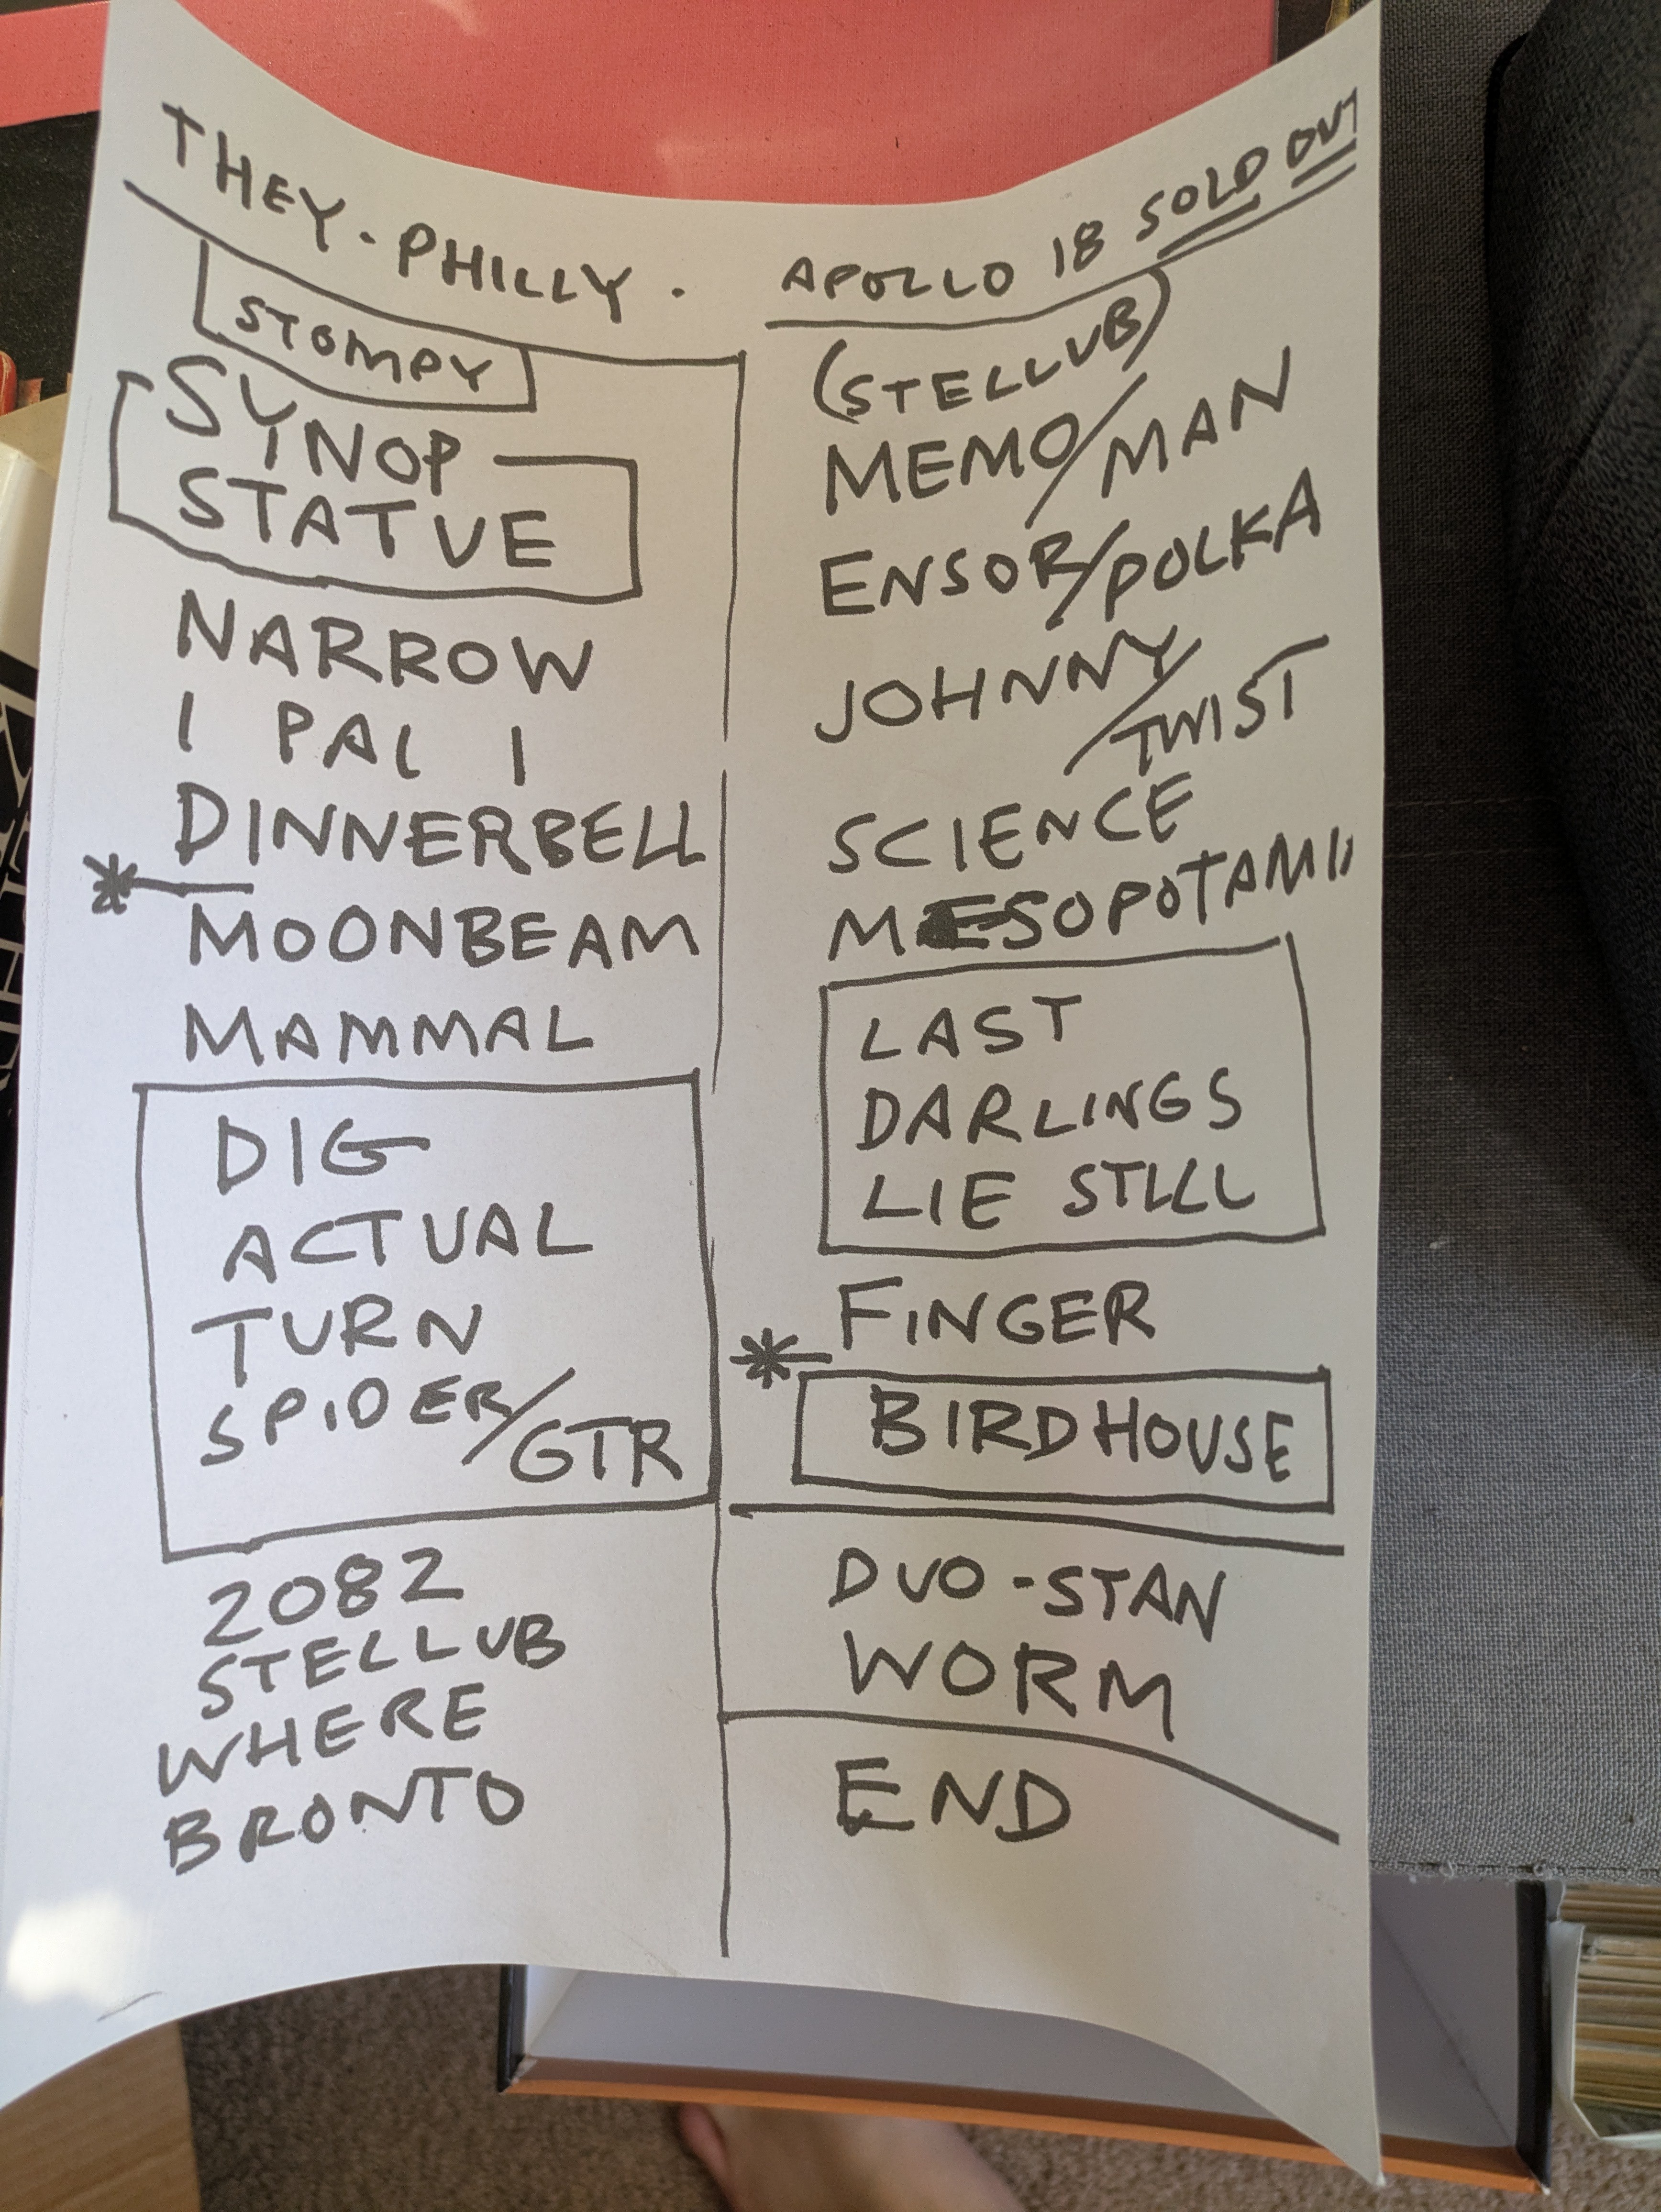 THEY - PHILLY. APOLLO 18 SOLD OUT
STOMPY
SYNOP
STATUE
NARROW
I PAL I
DINNERBELL
*
MOONBEAM
MAMMAL
DIG
ACTUAL
TURN
SPIDER/GTR
2082
STELLUB
WHERE
BRONTO
(STELLUB)
MEMO/MAN
ENSOR/POLKA
JOHNNY/TWIST
SCIENCE
MESOPOTAMII
LAST
DARLINGS
LIE STILL
FINGER
*
BIRDHOUSE
DUO-STAN
WORM
END